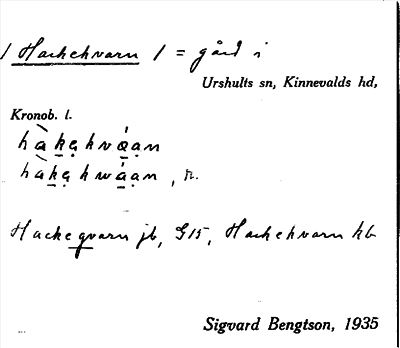 / Hackekvarn / = gård i
Urshults sn, Kinnevalds hd,
Kronob. l.
hàkękvá̱ąn
hàkękwá̱ąn, n.
Hackeqvarn jb, G15, Hackekvarn kb
Sigvard Bengtson, 1935